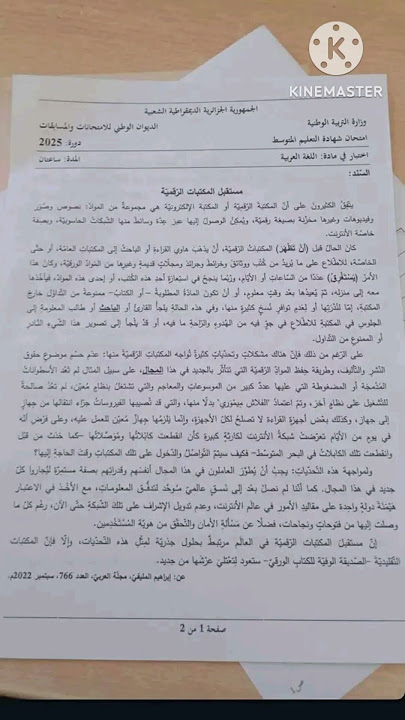 KINEMASTER
الجمهورية الجزائرية الديمقراطية الشعبية
وزارة التربية الوطنية
الديوان الوطني للامتحانات والمسابقات
امتحان شهادة التعليم المتوسط
دورة: 2025
اختبار في مادة: اللغة العربية
المدة: ساعتان
السّند:
مستقبل المكتبات الرّقميّة
يتفق الكثيرون على أنّ المكتبة الرّقميّة أو المكتبة الإلكترونيّة هي مجموعة من الموادّ: نصوص وصُوَر
وفيديوهات وغيرها مخزّنة بصيغة رقميّة، ويُمكن الوصول إليها عبر عِدّة وسائط منها الشّبكات الحاسوبيّة، وبصفة
خاصّة الأنترنت.
كان الحال قبل (أنْ تظهَر) المكتباتُ الرّقميّة، أنْ يذهَب هاوي القراءة أو الباحث إلى المكتبات العامّة، أو حتّى
الخاصّة، للاطّلاع على ما يُريدُ من كُتُب ووثائق وخرائط وجرائد ومجلّات قديمة وغيرها من الموادّ الورقيّة، وكان هذا
الأمرُ (يَستغرقُ) عددًا من السّاعات أو الأيّام، ورُبّما ينجح في استعارة أحد هذه الكُتب، أو إحدى هذه الموادّ، فيأخذها
معه إلى منزله، ثمّ يُعيدها بعد وقت معلوم، أو أنْ تكون المادّة المطلوبة –أو الكتاب– ممنوعة من التّداوُل خارج
المكتبة، إمّا لنُدرتها أو لعدم توافر نُسخ كثيرة منها، وفي هذه الحالة يلجأ القارئ أو الباحث أو طالب المعلومة إلى
الجلوس في المكتبة للاطّلاع في جوّ فيه من الهُدوء والرّاحة ما فيه، أو قد يلجأ إلى تصوير هذا الشّيء النّادر
أو الممنوع من التّداوُل.
على الرّغم من ذلك فإنّ هناك مشكلات وتحدّيات كثيرة تُواجه المكتبات الرّقميّة منها: عدم حَسم موضوع حقوق
النّشر والتّأليف، وطريقة حِفظ الموادّ الرّقميّة التي تتأثّر بالجديد في هذا المجال، على سبيل المثال لم تَعُد الأسطوانات
المُدمَجة أو المضغوطة التي عليها عدد كبير من الموسوعات والمعاجم والتي تشتغل بنظام مُعيّن، لم تَعُدْ صالحة
للتّشغيل على نظام آخر، وتمّ اعتماد "الفلاش ميموري" بدلًا منها، والتي قد تُصيبها الفيروسات جرّاء انتقالها من جهاز
إلى جهاز، وكذلك بعض أجهزة القراءة لا تصلُح لكلّ الأجهزة، وإنّما يلزمُها جهازٌ مُعيّن للعمل عليه، وعلى فرض أنّه
في يوم من الأيّام تعرّضت شبكةُ الأنترنت لكارثة كبيرة كأن انقطعت كابلاتُها ومُوصِّلاتُها –كما حَدَث من قبل
وانقطعت تلك الكابلات في البحر المتوسّط– فكيف سيتمّ التّواصُل والدّخول على تلك المكتبات وقتَ الحاجة إليها؟
ولمواجهة هذه التّحدّيات: يجبُ أنْ يُطوّر العاملون في هذا المجال أنفسهم وقدراتهم بصفة مستمرّة ليُجاروا كلّ
جديد في هذا المجال. كما أنّنا لم نصل بعد إلى نَسَق عالميّ مُوحّد لتدفُّق المعلومات، مع الأخذ في الاعتبار
هَيمنة دولة واحدة على مقاليد الأمور في عالم الأنترنت، وعدم تدويل الإشراف على تلك الشّبكة حتّى الآن، رغم كلّ ما
وصلت إليها من فتوحات ونجاحات، فضلًا عن مسألة الأمان والتّحقّق من هويّة المُستخدِمين.
إنّ مستقبل المكتبات الرّقميّة في العالم مرتبطٌ بحلول جذريّة لمِثل هذه التّحدّيات، وإلّا فإنّ المكتبات
التّقليديّة –الصّديقة الوفيّة للكتاب الورقيّ– ستعود لتعتلي عرشَها من جديد.
عن: إبراهيم المليفيّ، مجلّة العربيّ، العدد 766، سبتمبر 2022م.
صفحة 1 من 2